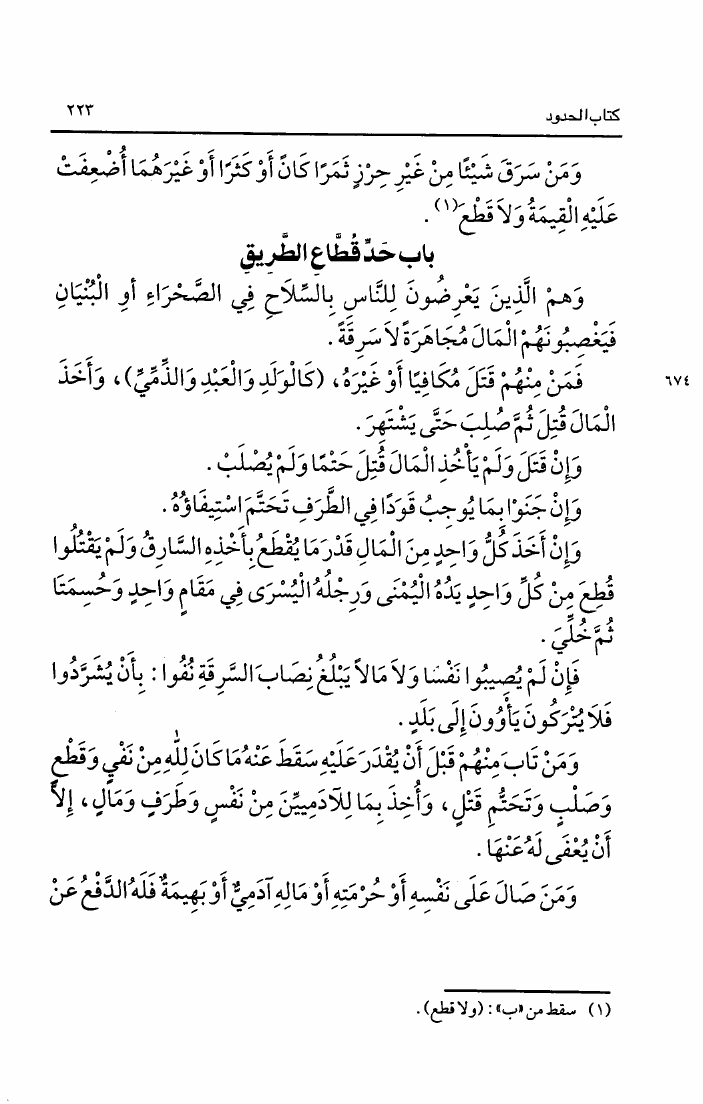 كتاب الحدود ٢٢٣
وَمَنْ سَرَقَ شَيْئًا مِنْ غَيْرِ حِرْزٍ ثَمَرًا كَانَ أَوْ كَثَرًا أَوْ غَيْرَهُمَا أُضْعِفَتْ
عَلَيْهِ الْقِيمَةُ وَلاَ قَطْعَ(١).
باب حَدِّ قُطَّاعِ الطَّرِيقِ
وَهمْ الَّذِينَ يَعْرِضُونَ لِلنَّاسِ بِالسِّلَاحِ فِي الصَّحْرَاءِ أوِ الْبُنْيَانِ
فَيَغْصِبُونَهُمْ الْمَالَ مُجَاهَرَةً لاَ سَرِقَةً.
فَمَنْ مِنْهُمْ قَتَلَ مُكَافِيًا أَوْ غَيْرَهُ، (كَالْوَلَدِ وَالْعَبْدِ وَالذِّمِّيِّ)، وَأَخَذَ ٦٧٤
الْمَالَ قُتِلَ ثُمَّ صُلِبَ حَتَّى يَشْتَهِرَ.
وَإِنْ قَتَلَ وَلَمْ يَأْخُذِ الْمَالَ قُتِلَ حَتْمًا وَلَمْ يُصْلَبْ.
وَإِنْ جَنَوْا بِمَا يُوجِبُ قَوَدًا فِي الطَّرَفِ تَحَتَّمَ اسْتِيفَاؤُهُ.
وَإِنْ أَخَذَ كُلُّ وَاحِدٍ مِنَ الْمَالِ قَدْرَ مَا يُقْطَعُ بِأَخْذِهِ السَّارِقُ وَلَمْ يَقْتُلُوا
قُطِعَ مِنْ كُلِّ وَاحِدٍ يَدُهُ الْيُمْنَى وَرِجْلُهُ الْيُسْرَى فِي مَقَامٍ وَاحِدٍ وَحُسِمَتَا
ثُمَّ خُلِّيَ.
فَإِنْ لَمْ يُصِيبُوا نَفْسًا وَلاَ مَالاً يَبْلُغُ نِصَابَ السَّرِقَةِ نُفُوا: بِأَنْ يُشَرَّدُوا
فَلَا يُتْرَكُونَ يَأْوُونَ إِلَى بَلَدٍ.
وَمَنْ تَابَ مِنْهُمْ قَبْلَ أَنْ يُقْدَرَ عَلَيْهِ سَقَطَ عَنْهُ مَا كَانَ لِلَّهِ مِنْ نَفْيٍ وَقَطْعٍ
وَصَلْبٍ وَتَحَتُّمِ قَتْلٍ، وَأُخِذَ بِمَا لِلآدَمِيينَ مِنْ نَفْسٍ وَطَرَفٍ وَمَالٍ، إِلاَّ
أَنْ يُعْفَى لَهُ عَنْهَا.
وَمَنَ صَالَ عَلَى نَفْسِهِ أَوْ حُرْمَتِهِ أَوْ مَالِهِ آدَمِيٌّ أَوْ بَهِيمَةٌ فَلَهُ الدَّفْعُ عَنْ
(١) سقط من «ب»: (ولا قطع).